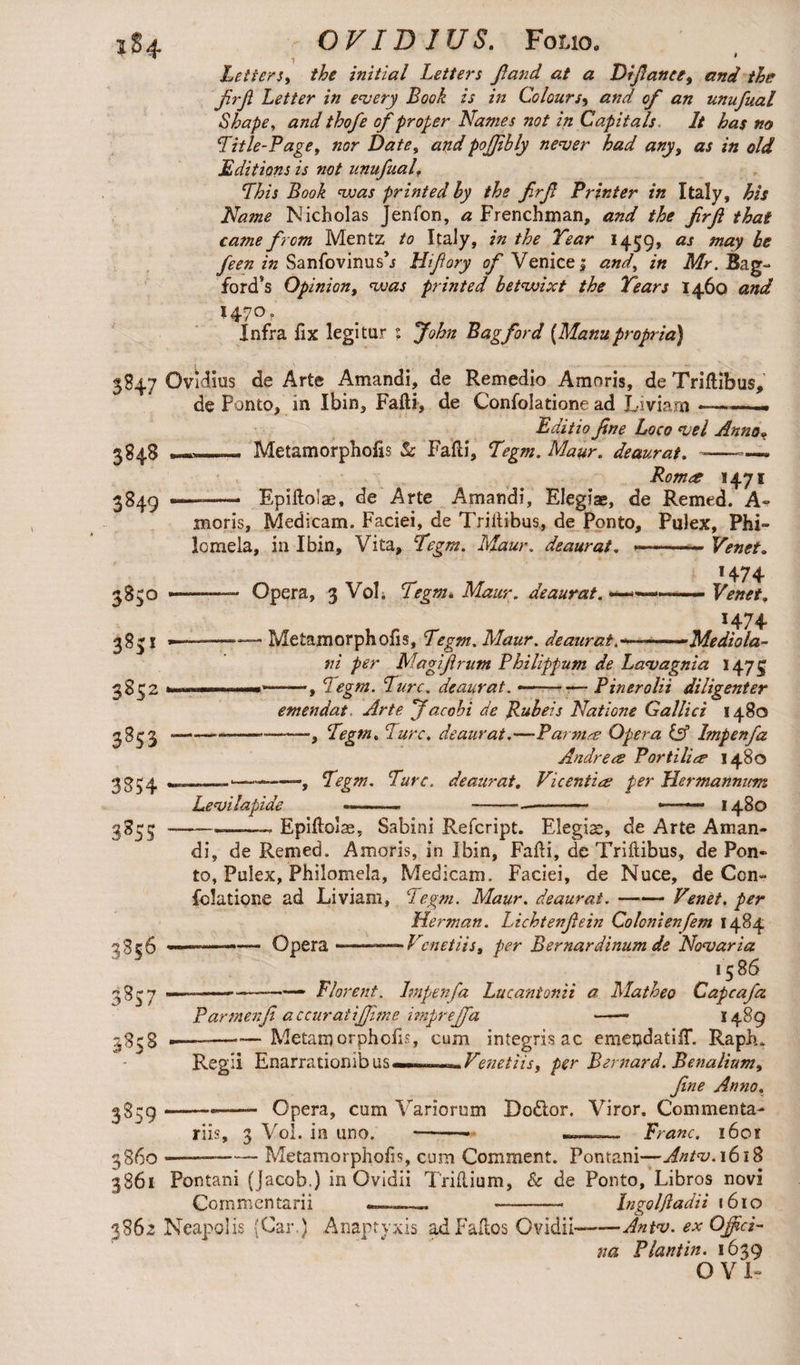 184 OVIDIUS. Folio.
Letters, the initial Letters ſtand at a Diſtance, and the
firſt Letter in every Book is in Colours, and of an unuſual
Shape, and thoſe of proper Names not in Capitals. It has no
Title-Page, nor Date, and poſſibly never had any, as in old
Editions is not unuſual.
This Book was printed by the firſt Printer in Italy, his
Name Nicholas Jenſon, a Frenchman, and the firſt that
came from Mentz to Italy, in the Year 1459, as may be
ſeen in Sanſovinus's Hiſtory of Venice; and, in Mr. Bag-
ford's Opinion, was printed betwixt the Years 1460 and
1470.
Infra ſix legitur: John Bagford (Manu propria)
3847 Ovidius de Arte Amandi, de Remedio Amoris, de Triſtibus,
de Ponto, in Ibin, Faſti, de Conſolatione ad Liviam ———
Editio ſine Loco vel Anno.
3848 ——— Metamorphoſis & Faſti, Tegm. Maur. deaurat. ———
Romæ 1471
3849 ——— Epiſtolæ, de Arte Amandi, Elegiæ, de Remed. A-
moris, Medicam. Faciei, de Triſtibus, de Ponto, Pulex, Phi-
lomela, in Ibin, Vita, Tegm. Maur. deaurat. ——— Venet.
1474
3850 ——— Opera, 3 Vol. Tegm. Maur. deaurat. ——— Venet.
1474
3851 ——— Metamorphoſis, Tegm. Maur. deaurat.———Mediola-
ni per Magiſtrum Philippum de Lavagnia 1475
3852 ———, Tegm. Turc. deaurat. ——— Pinerolii diligenter
emendat. Arte Jacobi de Rubeis Natione Gallici 1480
3853 ———, Tegm. Turc. deaurat.—Parmæ Opera & Impenſa
Andreæ Portiliæ 1480
3854 ———, Tegm. Turc. deaurat. Vicentiæ per Hermannum
Levilapide ——— ——— ——— 1480
3855 ——— Epiſtolæ, Sabini Reſcript. Elegiæ, de Arte Aman-
di, de Remed. Amoris, in Ibin, Faſti, de Triſtibus, de Pon-
to, Pulex, Philomela, Medicam. Faciei, de Nuce, de Con-
ſolatione ad Liviam, Tegm. Maur. deaurat. ——— Venet. per
Herman. Lichtenſtein Colonienſem 1484
3856 ——— Opera ——— Venetiis, per Bernardinum de Novaria
1586
3857 ——— Florent. Impenſa Lucantonii a Matheo Capcaſa
Parmenſi accuratiſſime impreſſa ——— 1489
3858 ——— Metamorphoſis, cum integris ac emendatiſſ. Raph.
Regii Enarrationibus———Venetiis, per Bernard. Benalium,
ſine Anno.
3859 ——— Opera, cum Variorum Doctor. Viror. Commenta-
riis, 3 Vol. in uno. ——— ——— Franc. 1601
3860 ——— Metamorphoſis, cum Comment. Pontani—Antv. 1618
3861 Pontani (Jacob.) in Ovidii Triſtium, & de Ponto, Libros novi
Commentarii ——— ——— Ingolſtadii 1610
3862 Neapolis (Car.) Anaptyxis ad Faſtos Ovidii———Antv. ex Offici-
na Plantin. 1639
OVI-